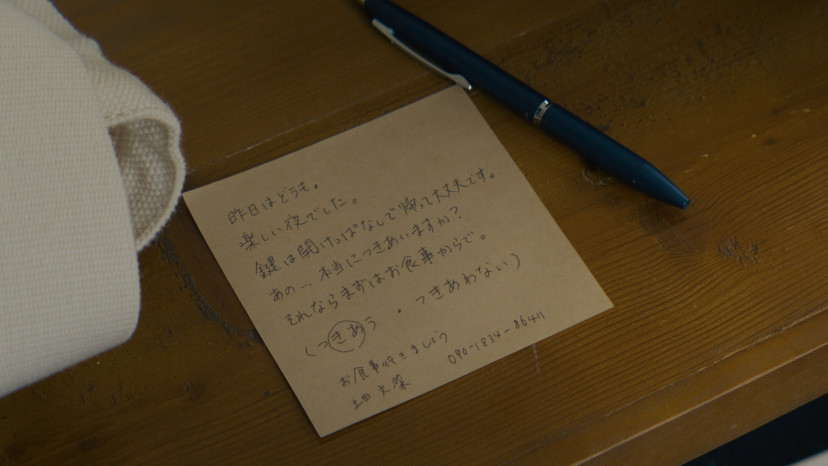 昨日はどうも。
楽しい夜でした。
鍵は開けっぱなしで帰って大丈夫です。
あの… 本当につきあいますか?
それならまずはお食事からで。
(つきあう ・ つきあわない)
お食事行きましょう
090-1834-86411